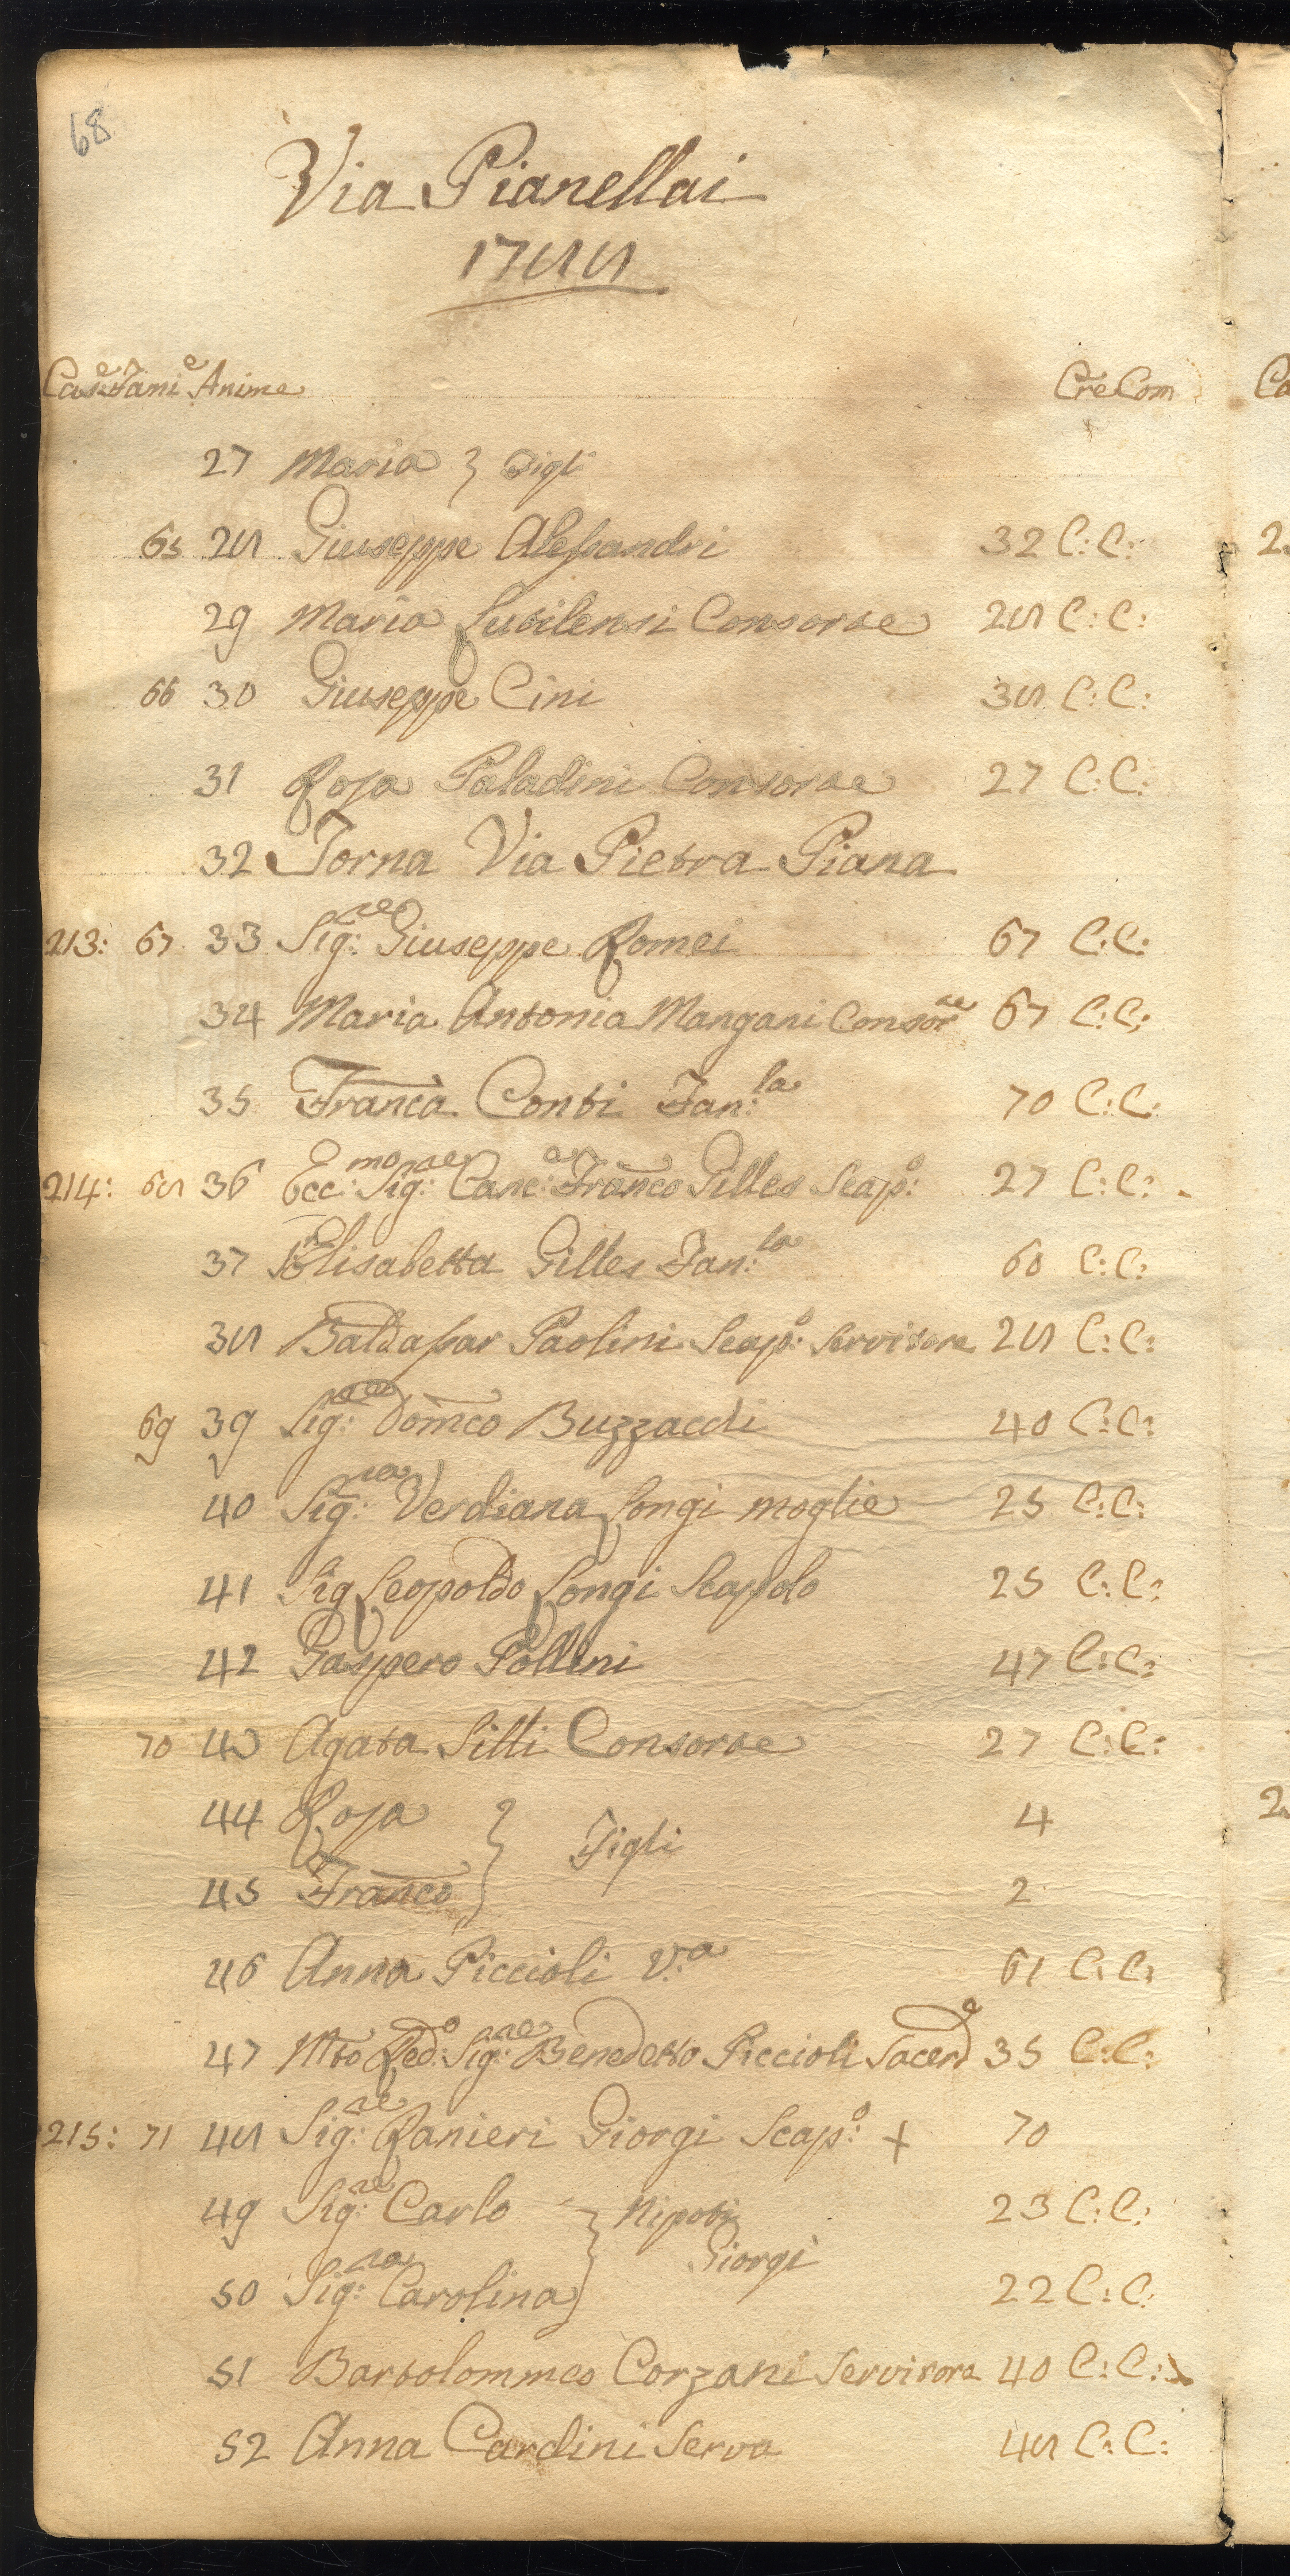 68
Via Pianellai
1788
Case Fami:e Anime Cre: Com
27 Maria } Figli
65 28 Giuseppe Alessandri 32 C: C:
29 Maria Consorte 28 C: C:
66 30 Giuseppe Cini 38 C: C:
31 Rosa Paladini Consorte 27 C: C:
32 Torna Via Pietra Piana
213: 67 33 Sig:re Giuseppe Romei 67 C: C:
34 Maria Antonia Mangani Consorte 67 C: C:
35 Franca Conti Fan:la 70 C: C:
214: 68 36 Ecc:mo Sig:re Canc:e Franco Gilles Scap:o 27 C: C:
37 Elisabetta Gilles Fan:la 60 C: C:
38 Baldassar Paolini Scap:o Servitore 28 C: C:
69 39 Sig:re Domco 40 C: C:
40 Sig:ra Verdiana Longi moglie 25 C: C:
41 Sig Leopoldo Longi Scapolo 25 C: C:
42 Gaspero Pollini 47 C: C:
70 43 Agata Silli Consorte 27 C: C:
44 Rosa } Figli 4
45 Franco } 2
46 Anna Piccioli V:a 61 C: C:
47 Mto Red:o Sig:re Benedetto Piccioli Sacerd:e 35 C: C:
215: 71 48 Sig:re Ranieri Giorgi Scap:o + 70
49 Sig:re Carlo } Nipoti 23 C: C:
Giorgi
50 Sig:ra Carolina } 22 C: C:
51 Bartolommeo Corzani Servitore 40 C: C:
52 Anna Cardini Serva 48 C: C: